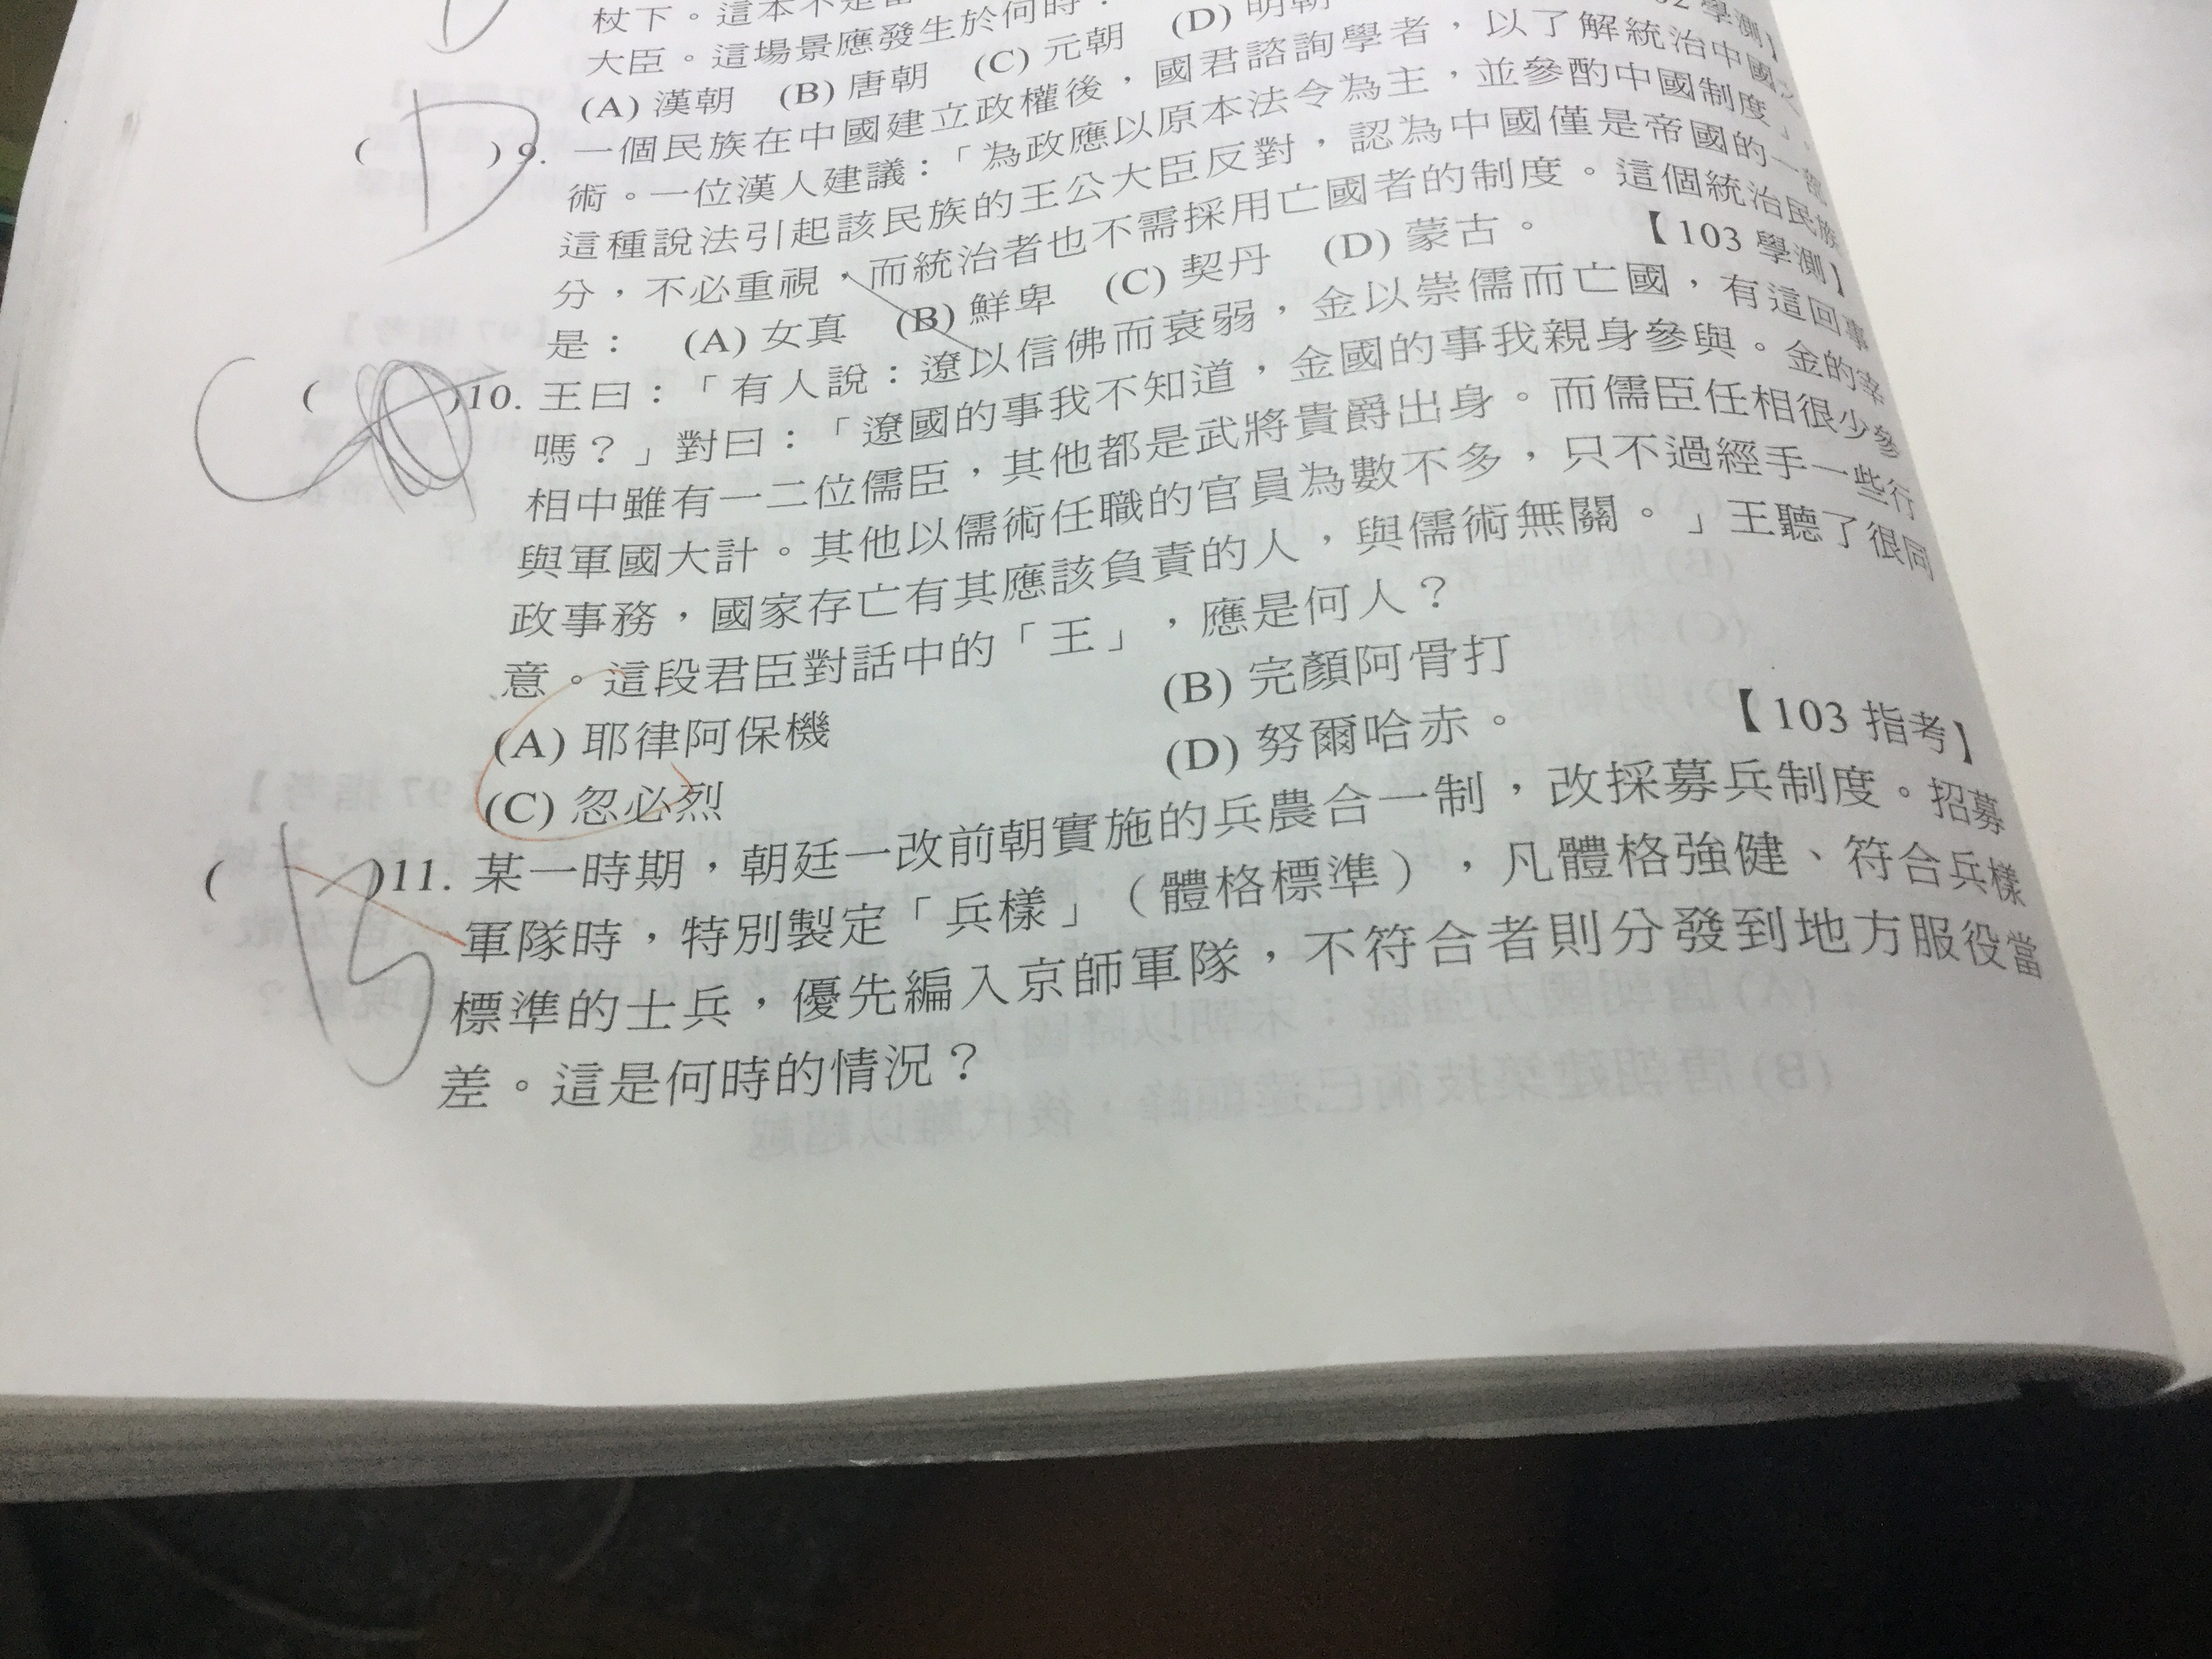 杖下。這本不是
大臣。這場景應發生於何時
(A) 漢朝 (B) 唐朝 (C) 元朝 (D) 明朝
學測】
D
( ) 9. 一個民族在中國建立政權後，國君諮詢學者，以了解統治中國之
術。一位漢人建議：「為政應以原本法令為主，並參酌中國制度」。
這種說法引起該民族的王公大臣反對，認為中國僅是帝國的一部
分，不必重視，而統治者也不需採用亡國者的制度。這個統治民族
是： (A) 女真 (B) 鮮卑 (C) 契丹 (D) 蒙古。 【103 學測】
C
( )10. 王曰：「有人說：遼以信佛而衰弱，金以崇儒而亡國，有這回事
嗎？」對曰：「遼國的事我不知道，金國的事我親身參與。金的宰
相中雖有一二位儒臣，其他都是武將貴爵出身。而儒臣任相很少參
與軍國大計。其他以儒術任職的官員為數不多，只不過經手一些行
政事務，國家存亡有其應該負責的人，與儒術無關。」王聽了很同
意。這段君臣對話中的「王」，應是何人？
(A) 耶律阿保機 (B) 完顏阿骨打
(C) 忽必烈 (D) 努爾哈赤。 【103 指考】
( )11. 某一時期，朝廷一改前朝實施的兵農合一制，改採募兵制度。招募
軍隊時，特別製定「兵樣」（體格標準），凡體格強健、符合兵樣
標準的士兵，優先編入京師軍隊，不符合者則分發到地方服役當
差。這是何時的情況？